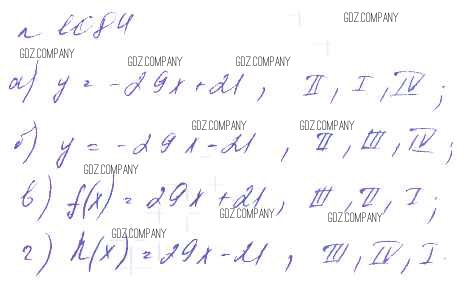 № 1084 GDZ.COMPANY
GDZ.COMPANY GDZ.COMPANY GDZ.COMPANY
а) y = -29x + 21, II, I, IV;
GDZ.COMPANY GDZ.COMPANY
б) y = -29x - 21, II, III, IV;
GDZ.COMPANY
в) f(x) = 29x + 21, III, II, I;
GDZ.COMPANY GDZ.COMPANY
GDZ.COMPANY
г) h(x) = 29x - 21, III, IV, I.